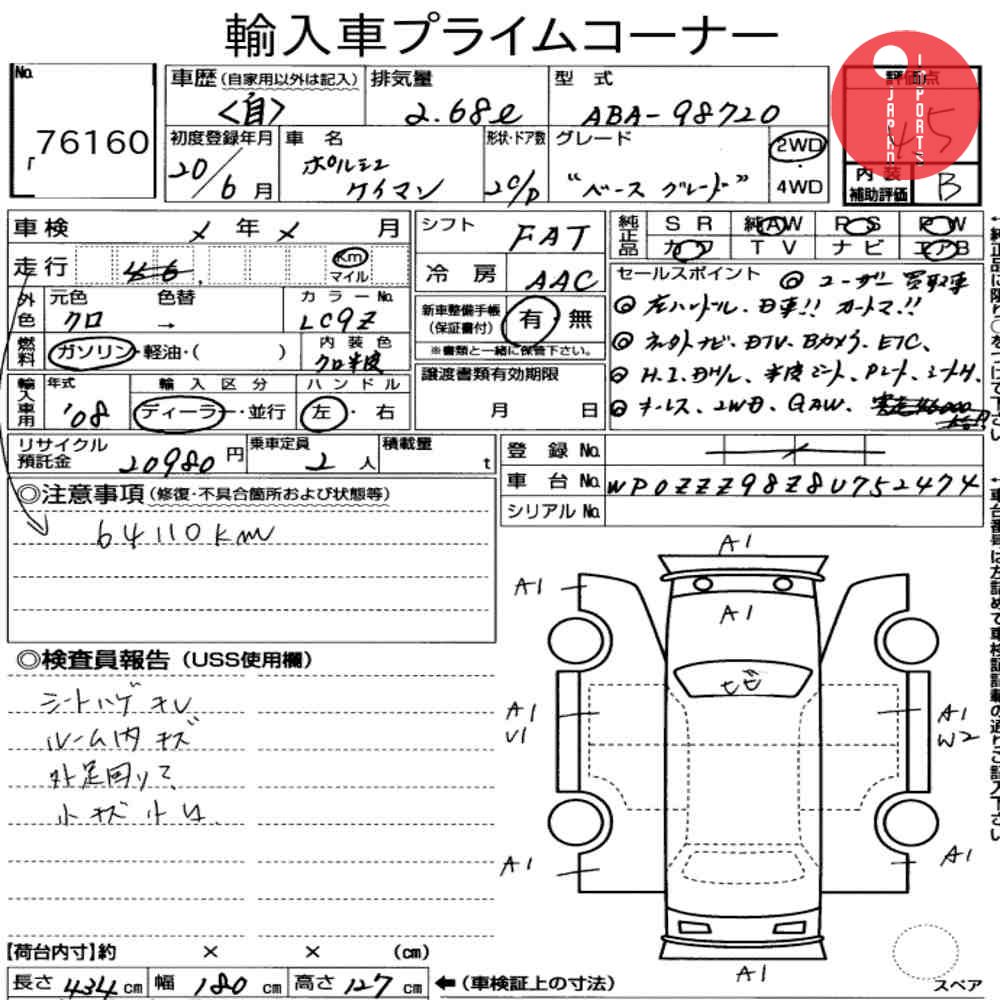 輸入車プライムコーナー
No.
76160
車歴(自家用以外は記入)
<自>
排気量
2.68ℓ
型 式
ABA-98720
評価点
4.5
JAPAN IMPORTS
初度登録年月
20/6月
車 名
ポルシェ
ケイマン
形状・ドア数
2C/P
グレード
"ベース グレード"
2WD
・
4WD
内装
補助評価
B
車検
メ 年 メ 月
走行
46,
Km
マイル
シフト
FAT
冷房
AAC
純正品
SR 純AW PS PW
カワ TV ナビ エアB
外色
元色
クロ
色替
→
カラーNo.
LC9Z
燃料
ガソリン・軽油・( )
内装色
クロ半皮
新車整備手帳
(保証書付)
有・無
※書類と一緒に保管下さい。
セールスポイント ◎ ユーザー買取車
◎ 左ハンドル、D車!! カートマ!!
◎ ネクストナビ、DTV、Bカメラ、ETC、
◎ H.I.D H/L、半皮シート、Pシート、シートH、
◎ キーレス、2WD、QAW、
輸入車用
年式
'08
輸入区分
ディーラー・並行
ハンドル
左・右
譲渡書類有効期限
月 日
リサイクル
預託金
20980円
乗車定員
2人
積載量
t
登録No.
車台No.
WP0ZZZ98Z8U752474
シリアルNo.
◎注意事項(修復・不具合箇所および状態等)
64110km
◎検査員報告(USS使用欄)
シートハゲ キレ
ルーム内 キズ
外足回りて
小キズ 小凹
A1
A1
A1
A1
V1
A1
W2
トビ
A1
A1
A1
【荷台内寸】約 × × (cm)
長さ 434 cm 幅 180 cm 高さ 127 cm
←(車検証上の寸法)
スペア